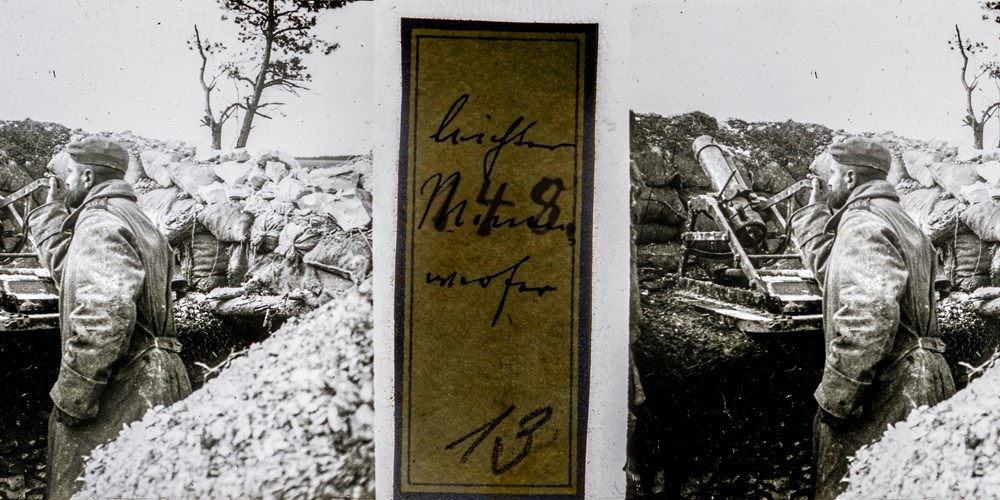 leichter
Minen
werfer
48
13